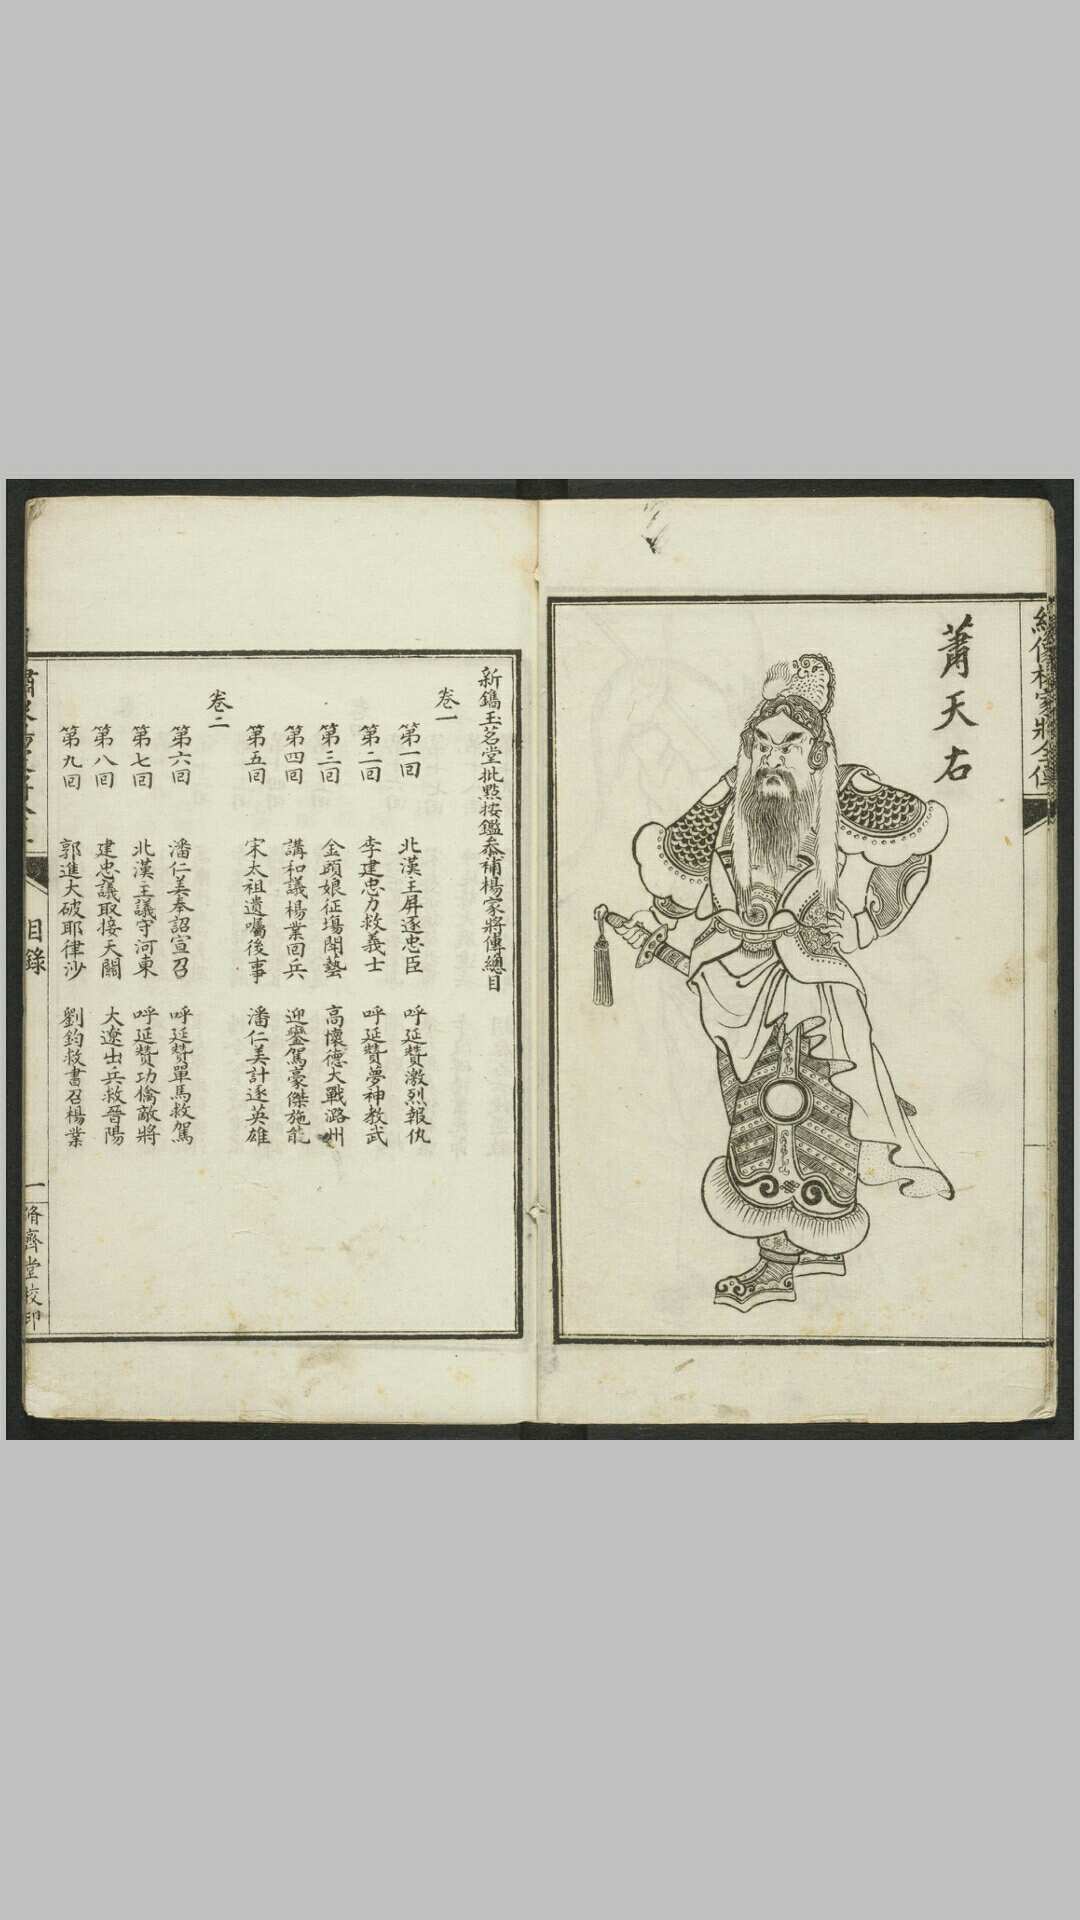 繡像楊家將全傳
蕭天右
新鐫玉茗堂批點按鑑叅補楊家將傳總目
卷一
第一回 北漢王屏逐忠臣 呼延贊激烈報仇
第二回 李建忠力救義士 呼延贊夢神教武
第三回 金頭娘征場鬬藝 高懷德大戰潞州
第四回 講和議楊業回兵 迎鑾駕豪傑施能
第五回 宋太祖遺囑後事 潘仁美計逐英雄
卷二
第六回 潘仁美奉詔宣召 呼延贊單馬救駕
第七回 北漢主議守河東 呼延贊功擒敵將
第八回 建忠議取接天關 大遼出兵救晉陽
第九回 郭進大破耶律沙 劉鈞敕書召楊業
目錄
一
脩齊堂校印